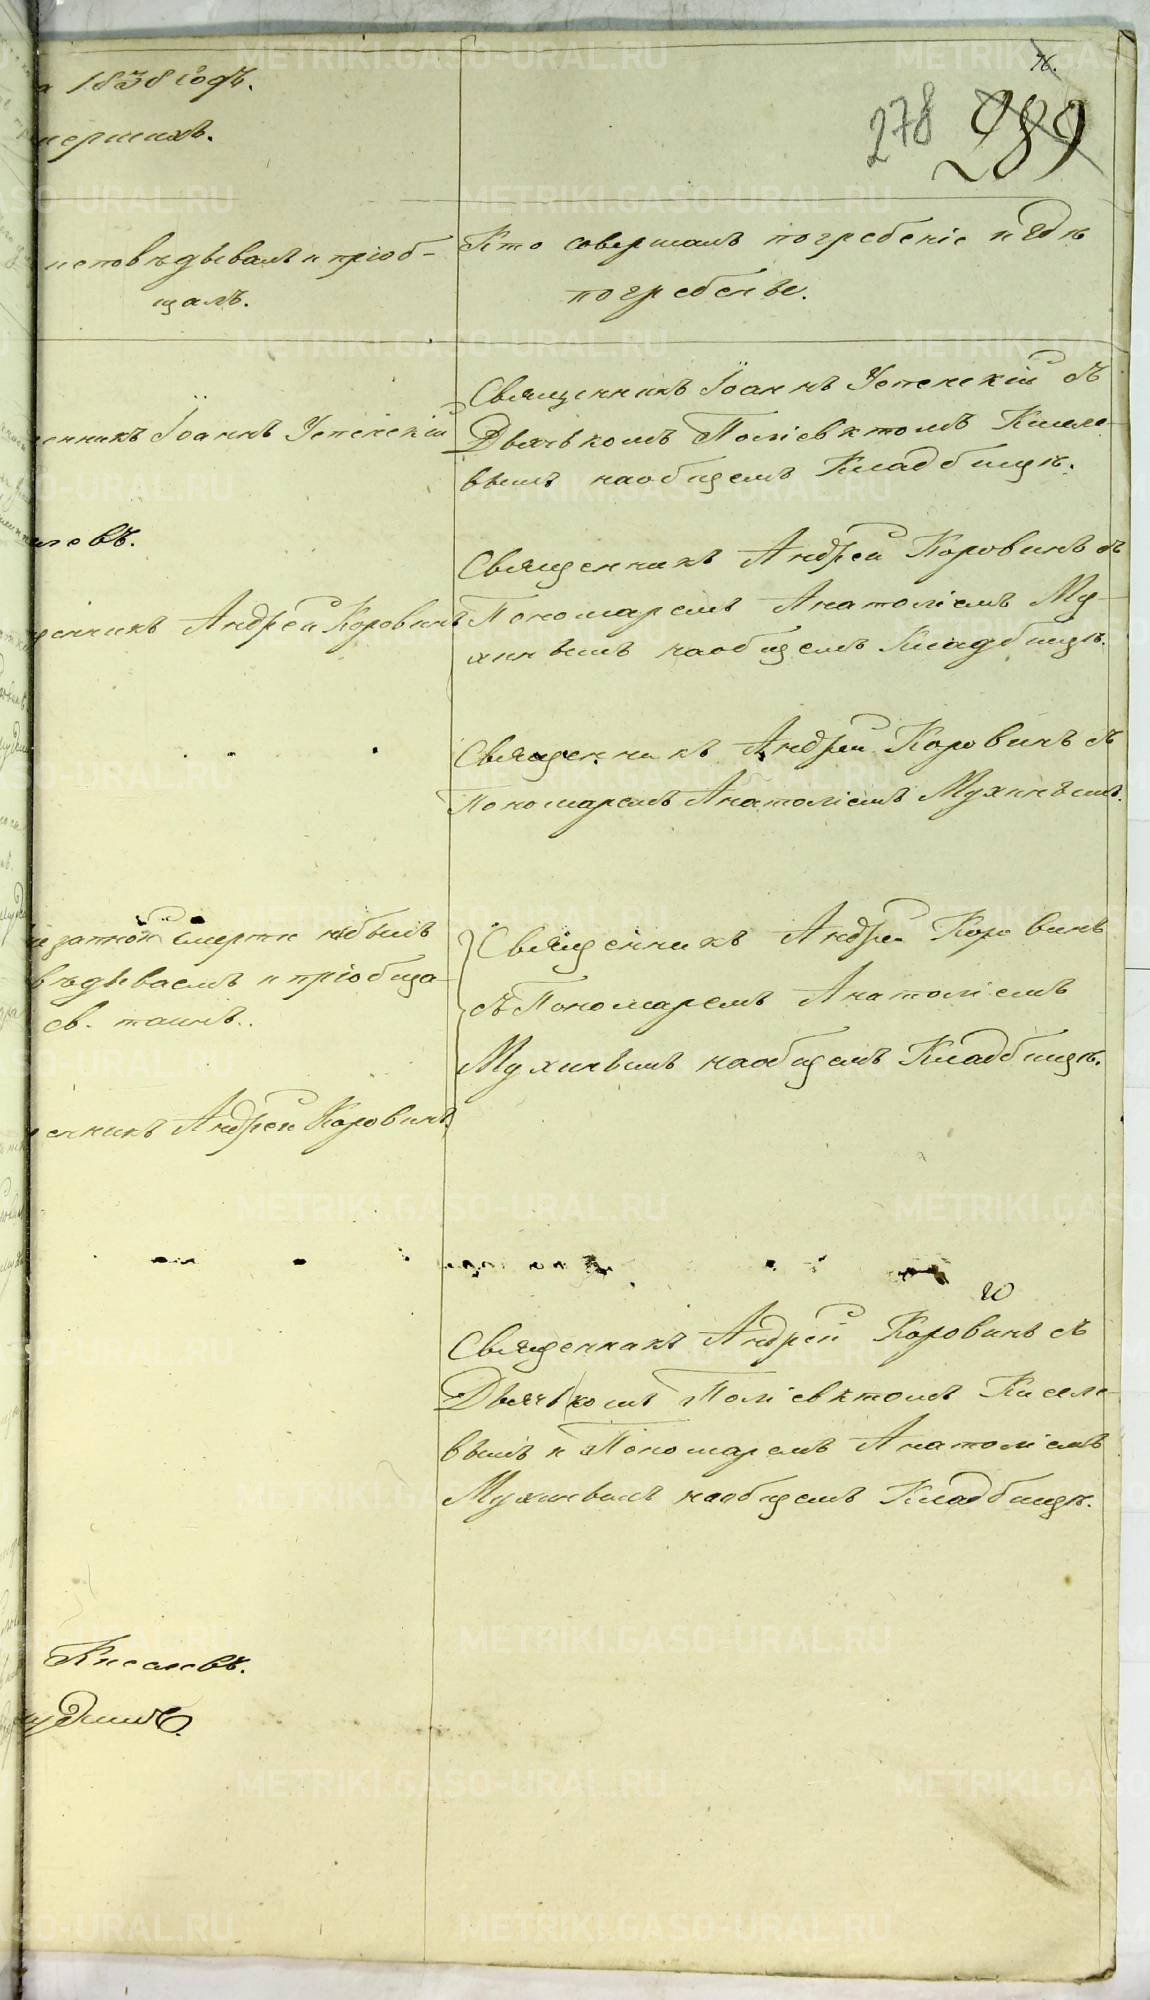 76.
278 289
а 1838 годъ.
мершихъ.
исповѣдывалъ и пріоб-
щалъ.
Кто совершалъ погребеніе и гдѣ
погребены.
енникъ Іоаннъ Успенскій
Священникъ Іоаннъ Успенскій съ
Дьячкомъ Поліевктомъ Киселе-
вымъ на общемъ Кладбищѣ.
левъ.
щенникъ Андрей Коровинъ
Священникъ Андрей Коровинъ съ
Пономаремъ Анатоліемъ Му-
хинымъ на общемъ Кладбищѣ.
Священникъ Андрей Коровинъ съ
Пономаремъ Анатоліемъ Мухинымъ.
запной смерти не былъ
вѣдываемъ и пріобща-
св. таинъ.
Священникъ Андрей Коровинъ
съ Пономаремъ Анатоліемъ
Мухинымъ на общемъ Кладбищѣ.
енникъ Андрей Коровинъ
Священникъ Андрей Коровинъ съ
Дьячкомъ Поліевктомъ Киселе-
вымъ и Пономаремъ Анатоліемъ
Мухинымъ на общемъ Кладбищѣ.
Киселевъ.
METRIKI.GASO-URAL.RU